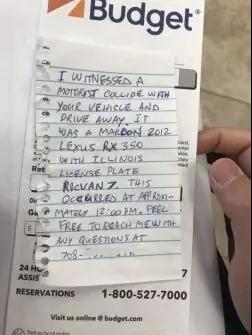 Budget®
I WITNESSED A
MOTORIST COLLIDE WITH
YOUR VEHICLE AND
DRIVE AWAY. IT
WAS A MAROON 2012
LEXUS RX 350
WITH ILLINOIS
LICENSE PLATE
RICVAN 7. THIS
OCCURRED AT APPROXI-
MATELY 12:00 PM. FEEL
FREE TO REACH ME WITH
ANY QUESTIONS AT
708-
24 HO
ASSIS 7
RESERVATIONS 1-800-527-7000
Visit us online @ budget.com